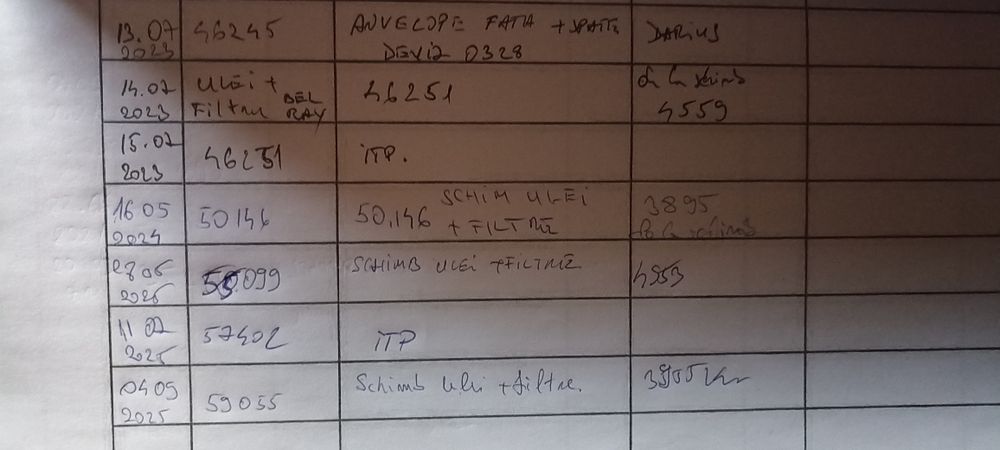 13.07
2023
46245
ANVELOPE FATA + SPATE
DEVIZ 0328
DARIUS
14.07
2023
ULEI +
Filtru BEL
RAY
46251
de la schimb
4559
15.07
2023
46251
iTP.
16 05
2024
50146
SCHIM ULEI
50,146 + FILTRE
3895
de la schimb
28 05
2025
55099
SCHIMB ULEI + FILTRE
4953
11 07
2025
57402
iTP
04 09
2025
59055
Schimb Ulei + filtre.
3955 Km